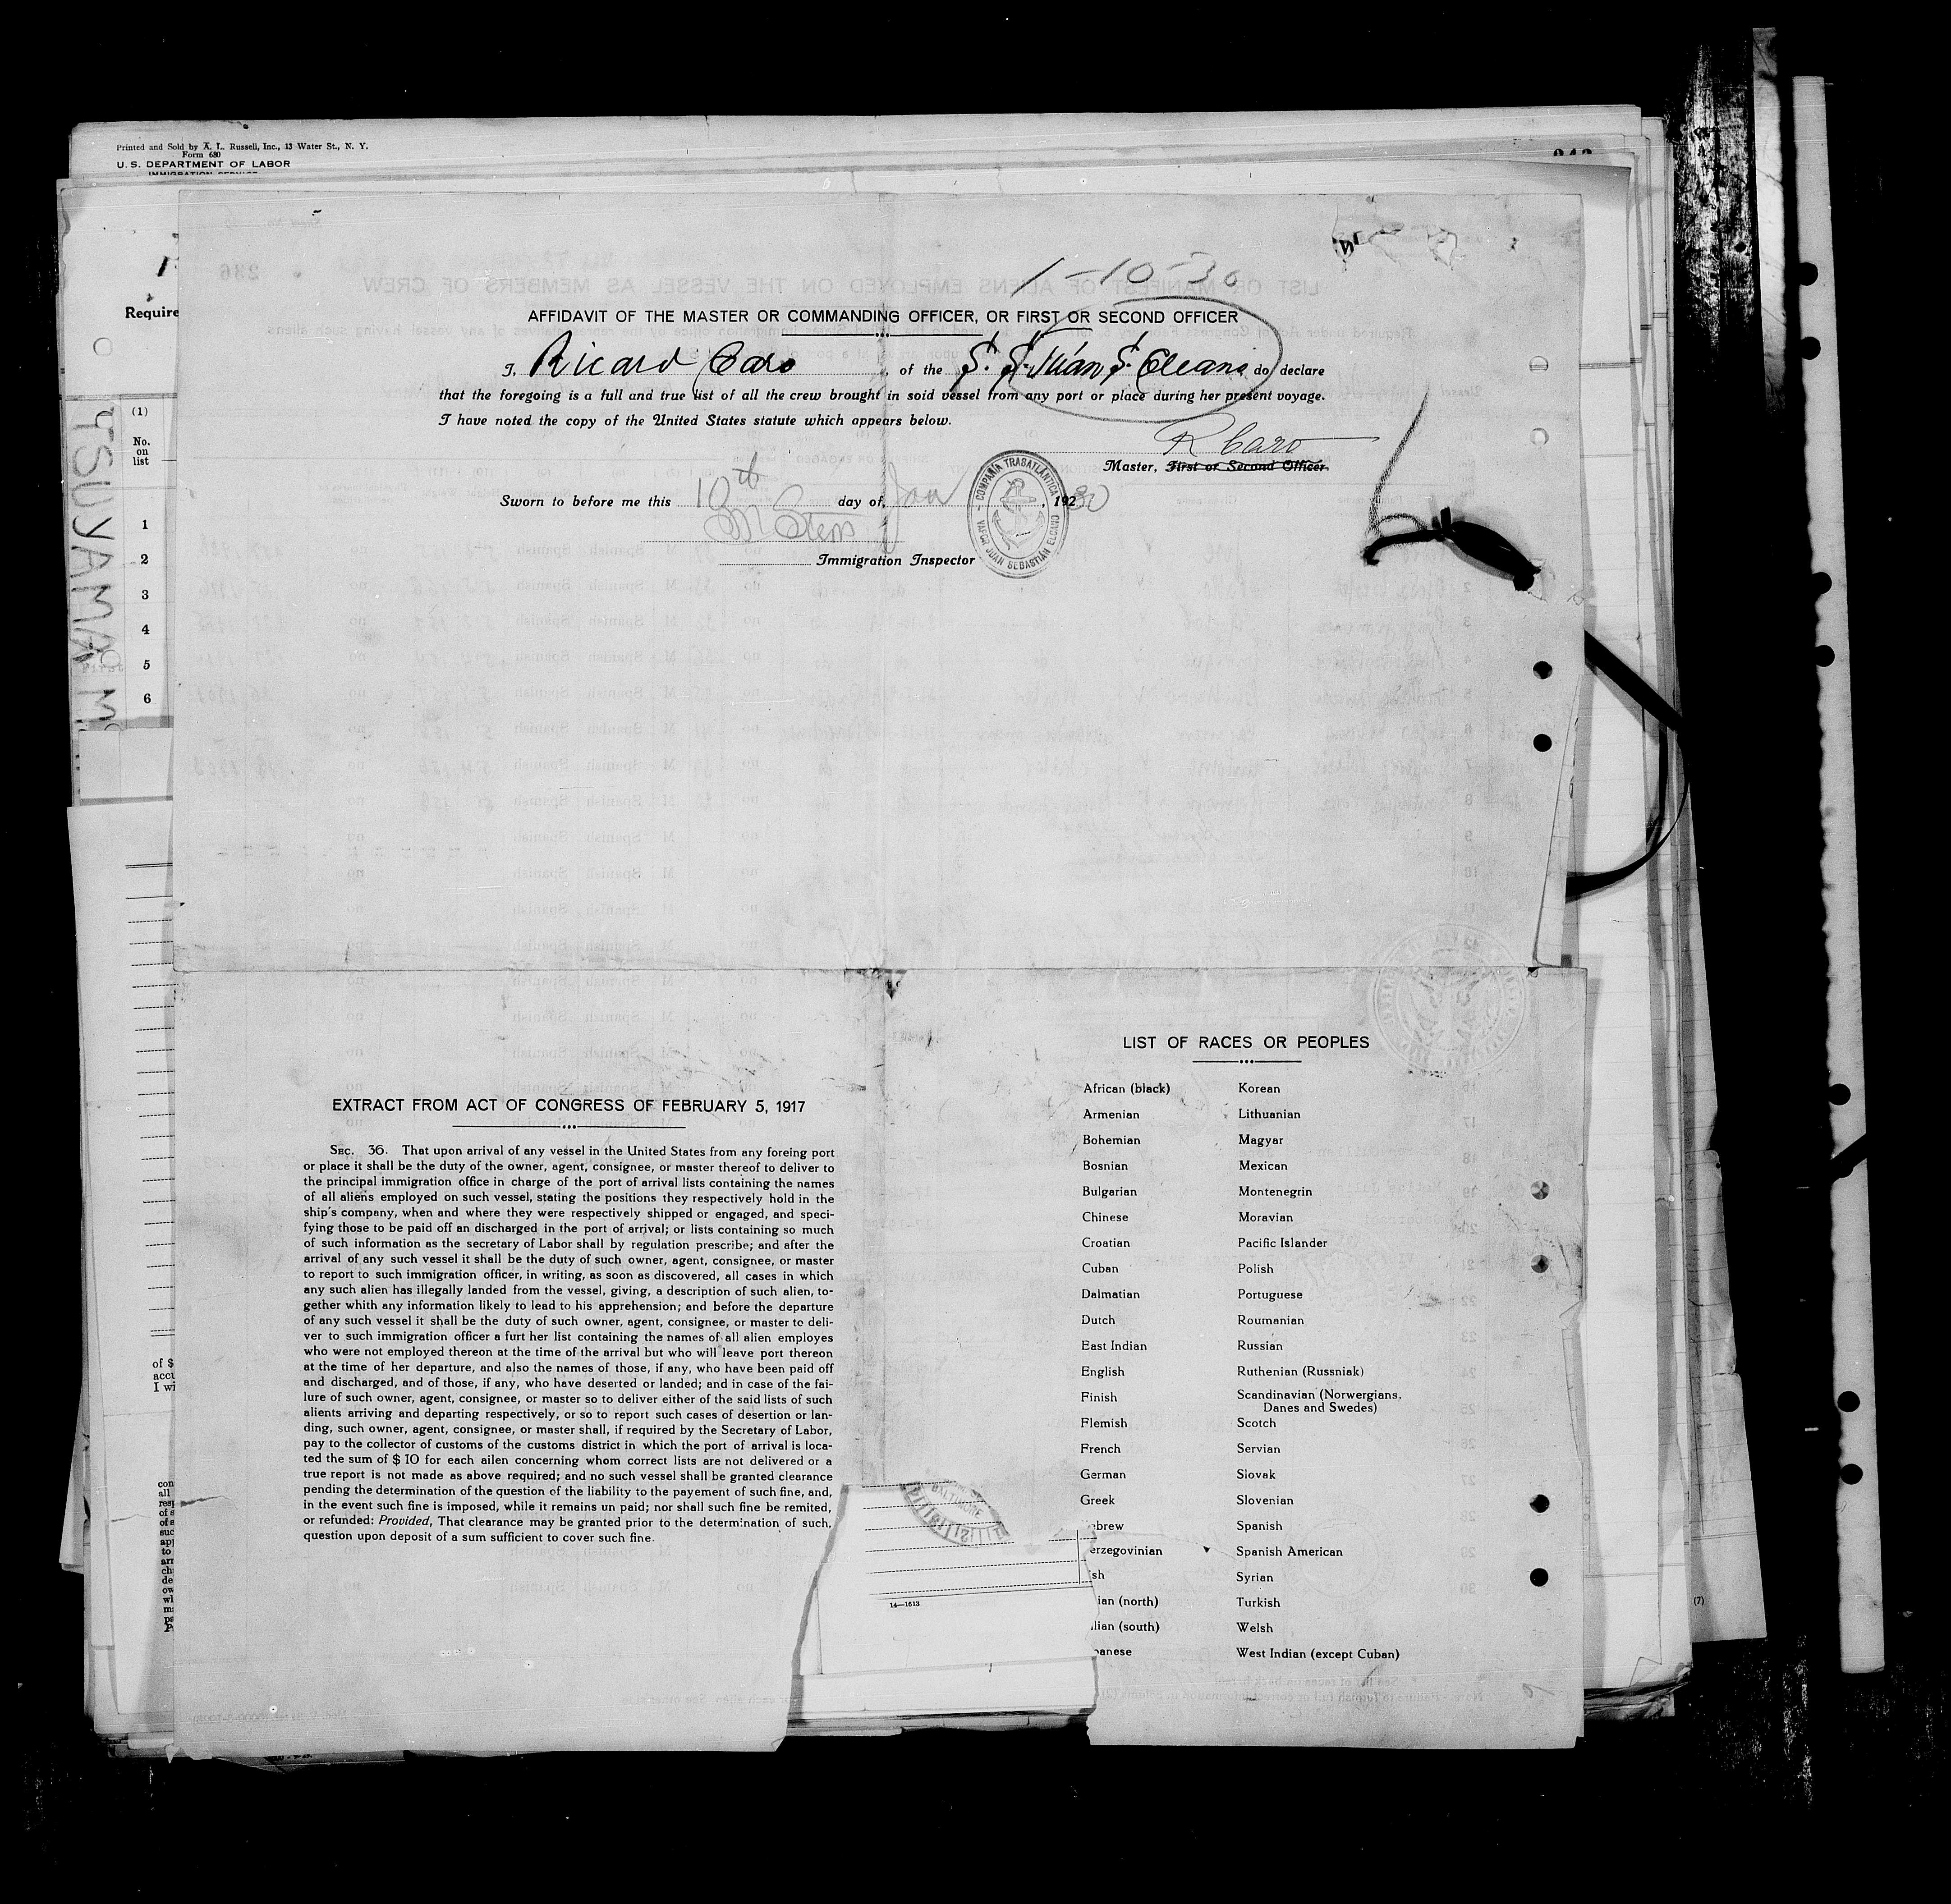 Printed and Sold by A. L. Russell, Inc., 13 Water St., N. Y.
Form 680
U. S. DEPARTMENT OF LABOR
IMMIGRATION SERVICE
Require
(1)
No.
on
list
TSUYAMA M
1
2
3
4
5
6
1-10-30
AFFIDAVIT OF THE MASTER OR COMMANDING OFFICER, OR FIRST OR SECOND OFFICER
I, Ricard Caro, of the S. S. Juan S. Elcano do declare
that the foregoing is a full and true list of all the crew brought in soid vessel from any port or place during her present voyage.
I have noted the copy of the United States statute which appears below.
R Caro
Master, First or Second Officer.
Sworn to before me this 10th day of Jan, 1930
Immigration Inspector
COMPAÑÍA TRASATLÁNTICA
VAPOR JUAN SEBASTIÁN ELCANO
EXTRACT FROM ACT OF CONGRESS OF FEBRUARY 5, 1917
SEC. 36. That upon arrival of any vessel in the United States from any foreing port
or place it shall be the duty of the owner, agent, consignee, or master thereof to deliver to
the principal immigration office in charge of the port of arrival lists containing the names
of all aliens employed on such vessel, stating the positions they respectively hold in the
ship's company, when and where they were respectively shipped or engaged, and speci-
fying those to be paid off an discharged in the port of arrival; or lists containing so much
of such information as the secretary of Labor shall by regulation prescribe; and after the
arrival of any such vessel it shall be the duty of such owner, agent, consignee, or master
to report to such immigration officer, in writing, as soon as discovered, all cases in which
any such alien has illegally landed from the vessel, giving, a description of such alien, to-
gether whith any information likely to lead to his apprehension; and before the departure
of any such vessel it shall be the duty of such owner, agent, consignee, or master to deli-
ver to such immigration officer a furt her list containing the names of all alien employes
who were not employed thereon at the time of the arrival but who will leave port thereon
at the time of her departure, and also the names of those, if any, who have been paid off
and discharged, and of those, if any, who have deserted or landed; and in case of the fai-
lure of such owner, agent, consignee, or master so to deliver either of the said lists of such
alients arriving and departing respectively, or so to report such cases of desertion or lan-
ding, such owner, agent, consignee, or master shall, if required by the Secretary of Labor,
pay to the collector of customs of the customs district in which the port of arrival is loca-
ted the sum of $ 10 for each ailen concerning whom correct lists are not delivered or a
true report is not made as above required; and no such vessel shall be granted clearance
pending the determination of the question of the liability to the payement of such fine, and,
in the event such fine is imposed, while it remains un paid; nor shall such fine be remited,
or refunded: Provided, That clearance may be granted prior to the determination of such,
question upon deposit of a sum sufficient to cover such fine.
LIST OF RACES OR PEOPLES
African (black) Korean
Armenian Lithuanian
Bohemian Magyar
Bosnian Mexican
Bulgarian Montenegrin
Chinese Moravian
Croatian Pacific Islander
Cuban Polish
Dalmatian Portuguese
Dutch Roumanian
East Indian Russian
English Ruthenian (Russniak)
Finish Scandinavian (Norwergians,
Danes and Swedes)
Flemish Scotch
French Servian
German Slovak
Greek Slovenian
ebrew Spanish
erzegovinian Spanish American
ish Syrian
lian (north) Turkish
lian (south) Welsh
panese West Indian (except Cuban)
BALTIMORE
14—1613
(7)
of $
accu
I wi